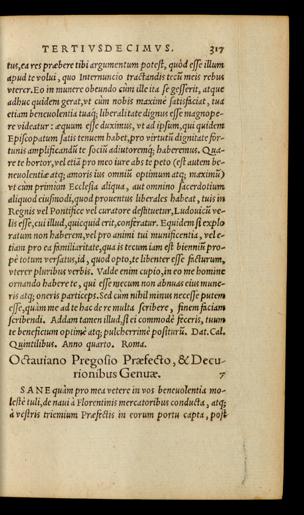 TERTIVSDECIMVS. 317
tus, ea res præbere tibi argumentum potest, quòd esse illum
apud te volui, quo Internuncio tractandis tecũ meis rebus
vterer. Eo in munere obeundo cùm ille ita se gesserit, atque
adhuc quidem gerat, vt cùm nobis maximè satisfaciat, tua
etiam beneuolentia tuaq; liberalitate dignus esse magnope-
re videatur: æquum esse duximus, vt ad ipsum, qui quidem
Episcopatum satis tenuem habet, pro virtutũ dignitate for-
tunis amplificandũ te sociũ adiutoremq; haberemus. Qua-
re te hortor, vel etiã pro meo iure abs te peto (est autem be-
neuolentiæ atq; amoris ius omniũ optimum atq; maximũ)
vt cùm primùm Ecclesia aliqua, aut omnino sacerdotium
aliquod eiusmodi, quod prouentus liberales habeat, tuis in
Regnis vel Pontifice vel curatore destituetur, Ludouicũ ve-
lis esse, cui illud, quicquid erit, conferatur. Equidem si explo
ratum non haberem, vel pro animi tui munificentia, vel e-
tiam pro ea familiaritate, qua is tecum iam est bienniũ pro-
pè totum versatus, id, quod opto, te libenter esse facturum,
vterer pluribus verbis. Valde enim cupio, in eo me homine
ornando habere te, qui esse necum non abnuas eius mune-
ris atq; oneris particeps. Sed cùm nihil minus necesse putem
esse, quàm me ad te hac de re multa scribere, finem faciam
scribendi. Addam tamen illud, si ei commodè feceris, tuum
te beneficum optimè atq; pulcherrimè positurũ. Dat. Cal.
Quintilibus. Anno quarto. Roma.
Octauiano Pregosio Præfecto, & Decu-
rionibus Genuæ. 7
SANE quàm pro mea vetere in vos beneuolentia mo-
lestè tuli, de naui à Florentinis mercatoribus conducta, atq;
à vestris triremium Præfectis in eorum portu capta, post